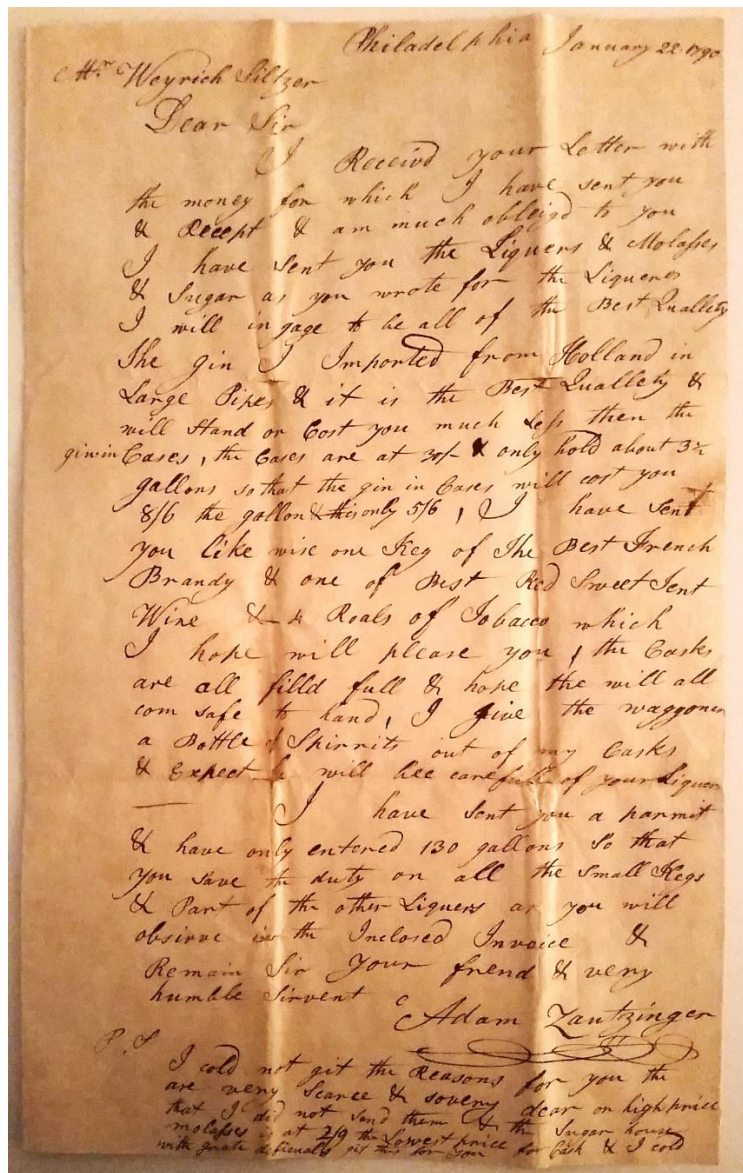 Philadelphia January 22 1790
Mr Weyrich Siltzer
Dear Sir
I Receivd your Letter with
the money for which I have sent you
& Recept & am much obleigd to you
I have sent you the Liquers & Molasses
& Sugar as you wrote for the Liqueres
I will ingage to be all of the Best Quallety
The gin I Imported from Holland in
Large Pipes & it is the Best Quallety &
will Stand or Cost you much less then the
gin in Cases, the Cases are at 30/- & only hold about 3½
gallons so that the gin in Cases will cost you
8/6 the gallon & this only 5/6, I have Sent
you like wise one Keg of The Best French
Brandy & one of Best Red Sweet Sent
Wine & 4 Roals of Tobacco which
I hope will please you, the Casks
are all filld full & hope the will all
com safe to hand, I give the waggoner
a Bottle of Spirrits out of my Casks
& Expect he will bee carefull of your Liquer
I have sent you a parmit
& have only entered 130 gallons So that
you save the duty on all the Small Kegs
& Part of the other Liquers as you will
obsirve in the Inclosed Invoice &
Remain Sir your frend & very
humble Sirvent
Adam Zantzinger
P.S
I cold not git the Reasons for you the
are very Scarce & sovery dear or high price
that I did not send them & the Sugar house
molasses is at 2/9 the Lowest price for Cash & I cold
with grate deficualty git this for you